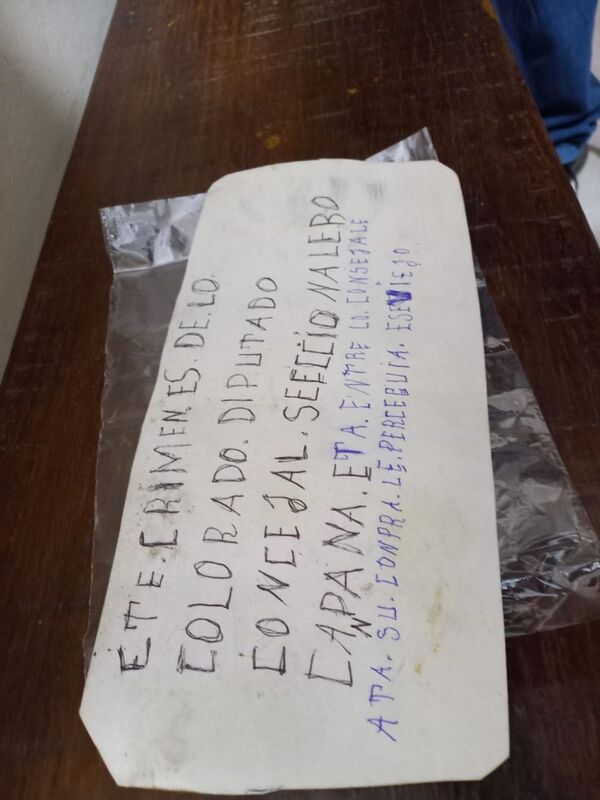 ETE.CRIMEN.ES.DE.LO.
COLORADO.DIPUTADO
CONCEJAL.SEECCIONALERO
CANPAÑA.ETA.ENTRE LO.CONSEJALE
ATA.SU.CONPRA.LE.PERCEGUIA.ESE VIEJO